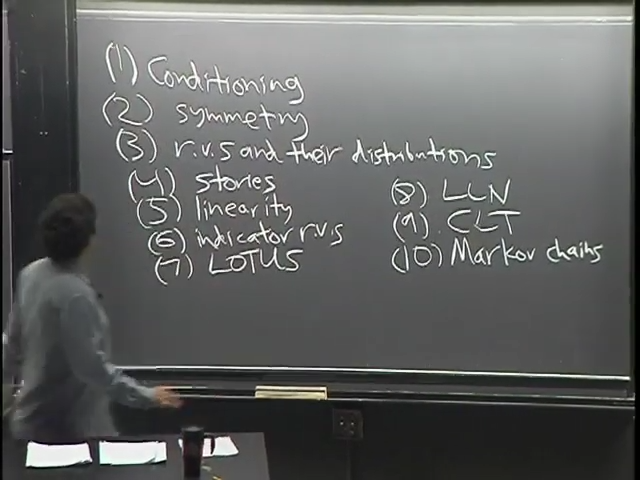 (1) Conditioning
(2) symmetry
(3) r.v.s and their distributions
(4) stories
(5) linearity
(6) indicator r.v.s
(7) LOTUS
(8) LLN
(9) CLT
(10) Markov chains